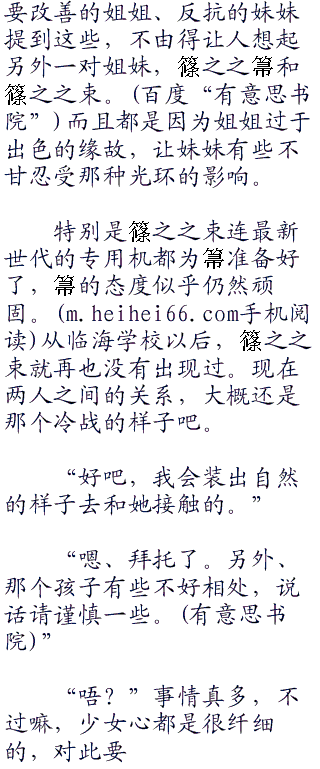 要改善的姐姐、反抗的妹妹
提到这些，不由得让人想起
另外一对姐妹，篠之之箒和
篠之之束。(百度“有意思书
院”)而且都是因为姐姐过于
出色的缘故，让妹妹有些不
甘忍受那种光环的影响。
特别是篠之之束连最新
世代的专用机都为箒准备好
了，箒的态度似乎仍然顽
固。(m.heihei66.com手机阅
读)从临海学校以后，篠之之
束就再也没有出现过。现在
两人之间的关系，大概还是
那个冷战的样子吧。
“好吧，我会装出自然
的样子去和她接触的。”
“嗯、拜托了。另外、
那个孩子有些不好相处，说
话请谨慎一些。(有意思书
院)”
“唔？”事情真多，不
过嘛，少女心都是很纤细
的，对此要